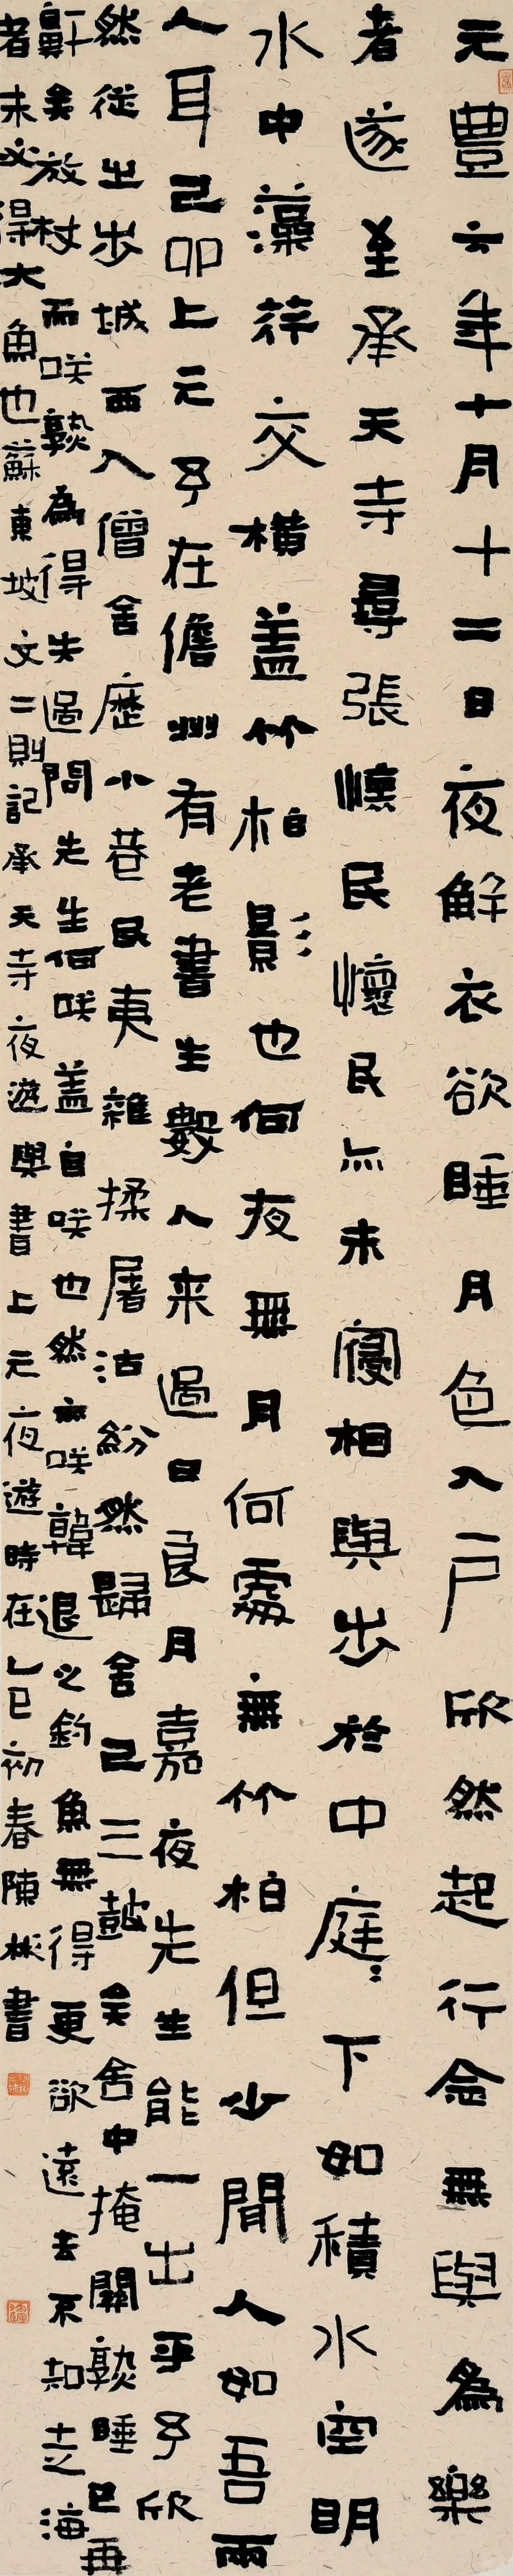 元豐六年十月十二日夜解衣欲睡月色入戶欣然起行念無與為樂
者遂至承天寺尋張懷民懷民亦未寢相與步於中庭庭下如積水空明
水中藻荇交橫蓋竹柏影也何夜無月何處無竹柏但少閒人如吾兩
人耳己卯上元予在儋州有老書生數人来過曰良月嘉夜先生能一出乎予欣
然從之步城西入僧舍歷小巷民夷雜揉屠沽紛然歸舍已三鼓矣舍中掩關熟睡已再
鼾矣放杖而咲孰為得失過問先生何咲蓋自咲也然亦咲韓退之釣魚無得更欲遠去不知走海
者未必得大魚也蘇東坡文二則記承天寺夜遊與書上元夜遊時在乙巳初春陳彬書